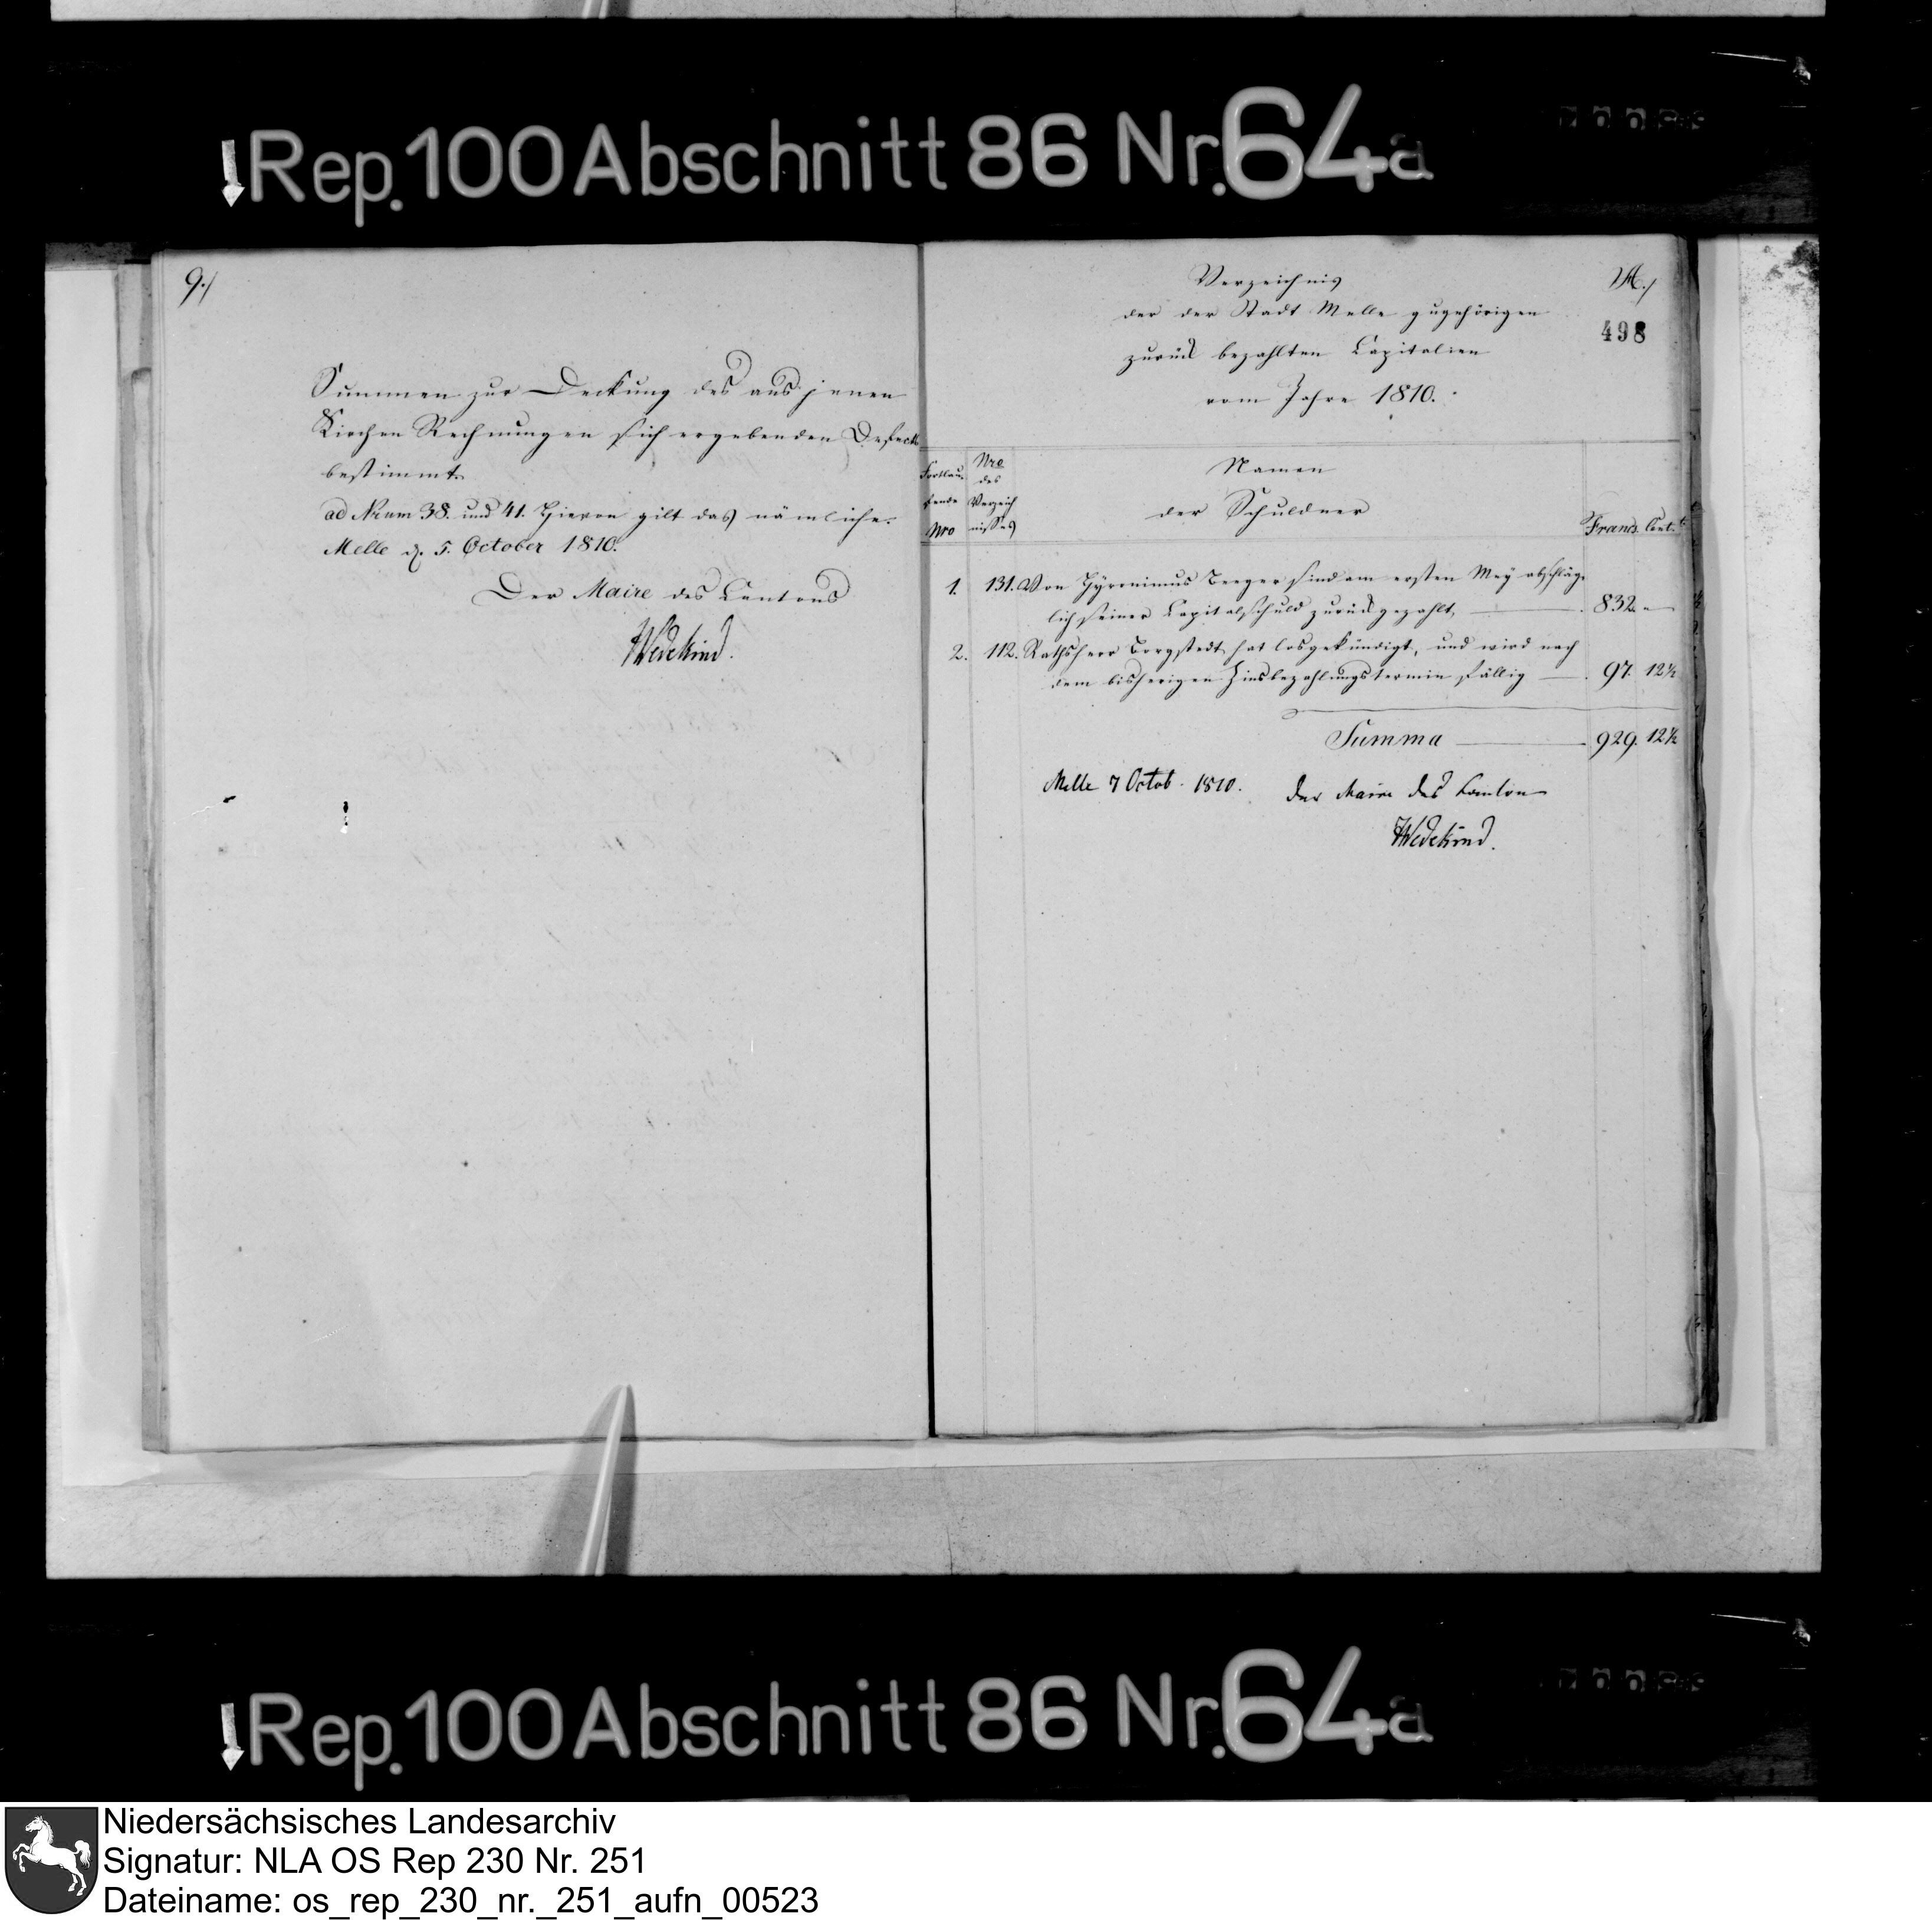 Rep. 100 Abschnitt 86 Nr. 64a
9./
Summen zur Deckung des aus jenen
Kirchen Rechnungen sich ergebenden Defects
bestimmt.
ad Num 38. und 41. Hievon gilt das nämliche.
Melle d. 5. October 1810.
Der Maire des Cantons
Wedekind.
Verzeichnis
der der Stadt Melle zugehörigen
zurück bezahlten Capitalien
vom Jahre 1810.
498
Fortlau-
fende
Nro
Nro
des
Verzeich
nisses
Namen
der Schuldner
Francs. Cent.
1. 131. Von Hÿronimus Berger sind am ersten Meÿ abschläg-
lich seiner Capitalschuld zurückgezahlt, 832. "
2. 112. Rathsherr Borgstedt hat losgekündigt, und wird nach
dem bisherigen Zinsbezahlungstermin fällig 97. 12½
Summa 929. 12½
Melle 7 Octob. 1810. Der Maire des Canton
Wedekind.
Rep. 100 Abschnitt 86 Nr. 64a
Niedersächsisches Landesarchiv
Signatur: NLA OS Rep 230 Nr. 251
Dateiname: os_rep_230_nr._251_aufn_00523